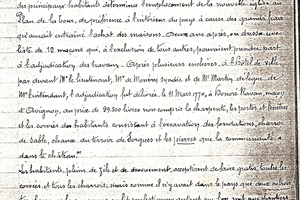 des principaux habitants détermina l'emplacement de la nouvelle église au
Plan de la bour, de préférence à l'intérieur du pays à cause des grands frais
qu'aurait entraîné l'achat des maisons. Deux ans après, on dressa une
liste de 12 maçons qui, à l'exclusion de tous autres, pouvaient prendre part
à l'adjudication des travaux. Après plusieurs enchères, à l'Hôtel de Ville,
par devant Mr le lieutenant, Mr de syndic et de Mr Martin délégué de
Mr l'intendant, l'adjudication fut délivrée, le 11 Mars 1770, à Benoît maçon
d'Avignon, au prix de 29.500 livres non compris la charpente, les portes et fenêtres
et la corvée des habitants consistant à l'excavation des fondations, charroi
de sable, chaux, du terroir de Sorgues et les pierres que la communauté a
dans le château."
Les habitants, pleins de zèle et de dévouement, acceptèrent de faire gratis, toutes les
corvées et tous les charrois, mais comme il n'y avait dans le pays que deux